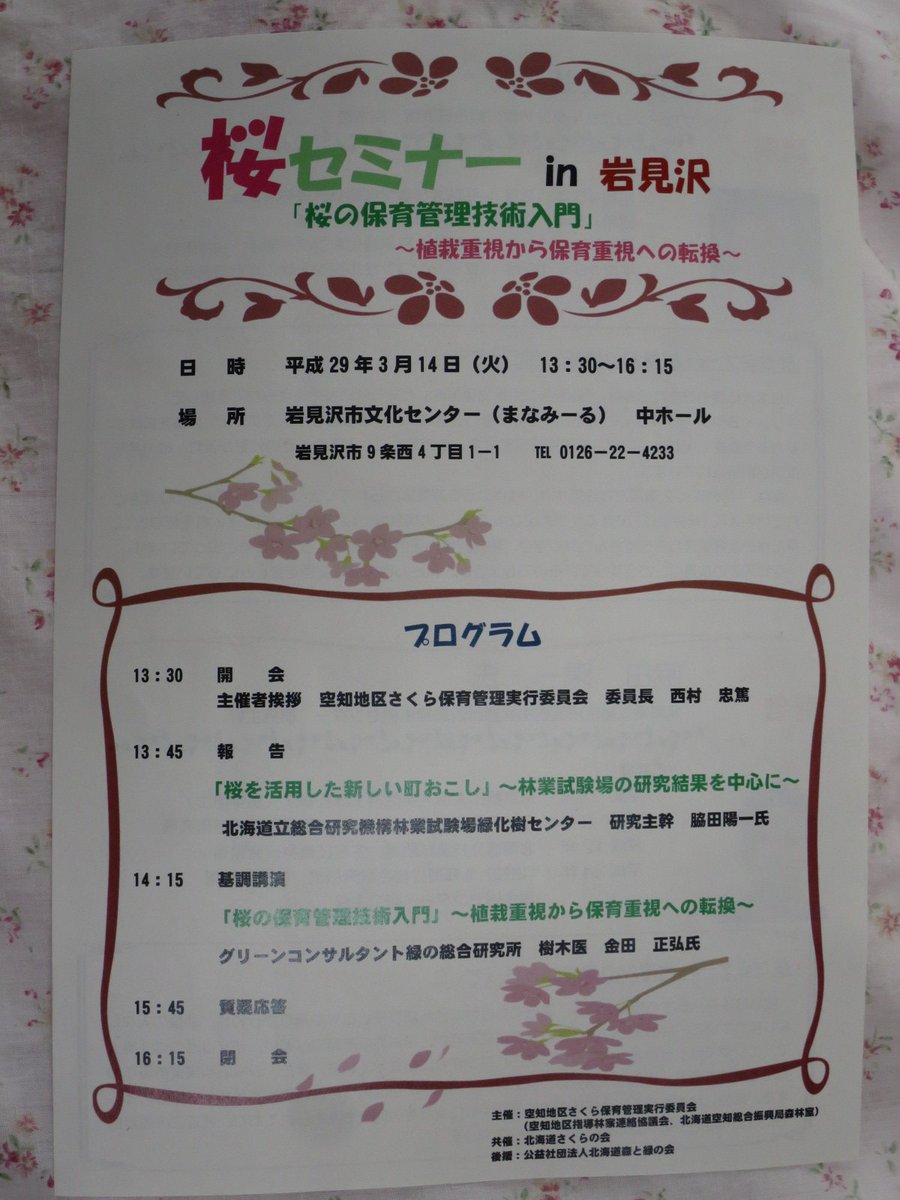 桜セミナー in 岩見沢
「桜の保育管理技術入門」
～植栽重視から保育重視への転換～
日　時　平成29年3月14日（火）　13：30～16：15
場　所　岩見沢市文化センター（まなみーる）　中ホール
岩見沢市9条西4丁目1－1　TEL 0126－22－4233
プログラム
13：30　開　会
主催者挨拶　空知地区さくら保育管理実行委員会　委員長　西村　忠篤
13：45　報　告
「桜を活用した新しい町おこし」～林業試験場の研究結果を中心に～
北海道立総合研究機構林業試験場緑化樹センター　研究主幹　脇田陽一氏
14：15　基調講演
「桜の保育管理技術入門」～植栽重視から保育重視への転換～
グリーンコンサルタント緑の総合研究所　樹木医　金田　正弘氏
15：45　質疑応答
16：15　閉　会
主催：空知地区さくら保育管理実行委員会
（空知地区指導林家連絡協議会、北海道空知総合振興局森林室）
共催：北海道さくらの会
後援：公益社団法人北海道森と緑の会